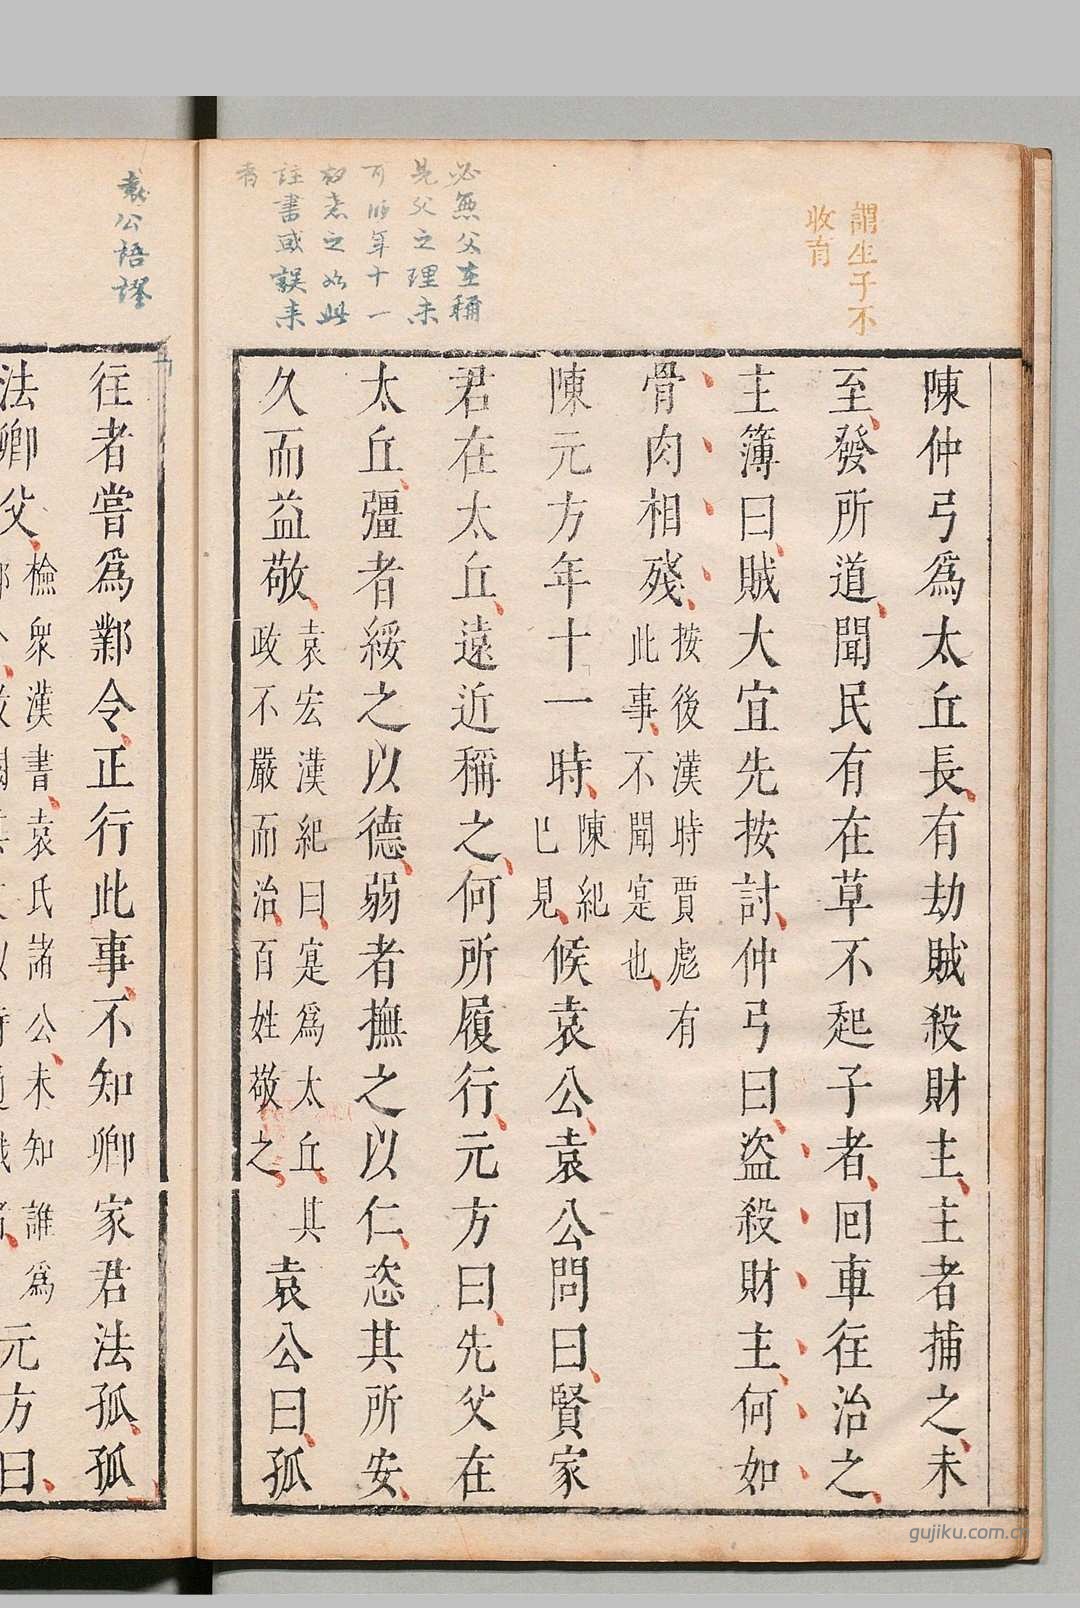 謂生子不
收育
陳仲弓爲太丘長有劫賊殺財主主者捕之未
至發所道聞民有在草不起子者回車往治之
主簿曰賊大宜先按討仲弓曰盜殺財主何如
骨肉相殘按後漢時賈彪有
此事不聞寔也
陳元方年十一時陳紀
已見候袁公袁公問曰賢家
君在太丘遠近稱之何所履行元方曰先父在
太丘彊者綏之以德弱者撫之以仁恣其所安
久而益敬袁宏漢紀曰寔爲太丘其
政不嚴而治百姓敬之袁公曰孤
必無父在稱
先父之理未
可所年十一
放恣之如此
註書或誤來
者
袁公語謬
往者嘗爲鄴令正行此事不知卿家君法孤孤
法卿父檢衆漢書袁氏諸公未知誰爲
元方曰
gujiku.com.cn